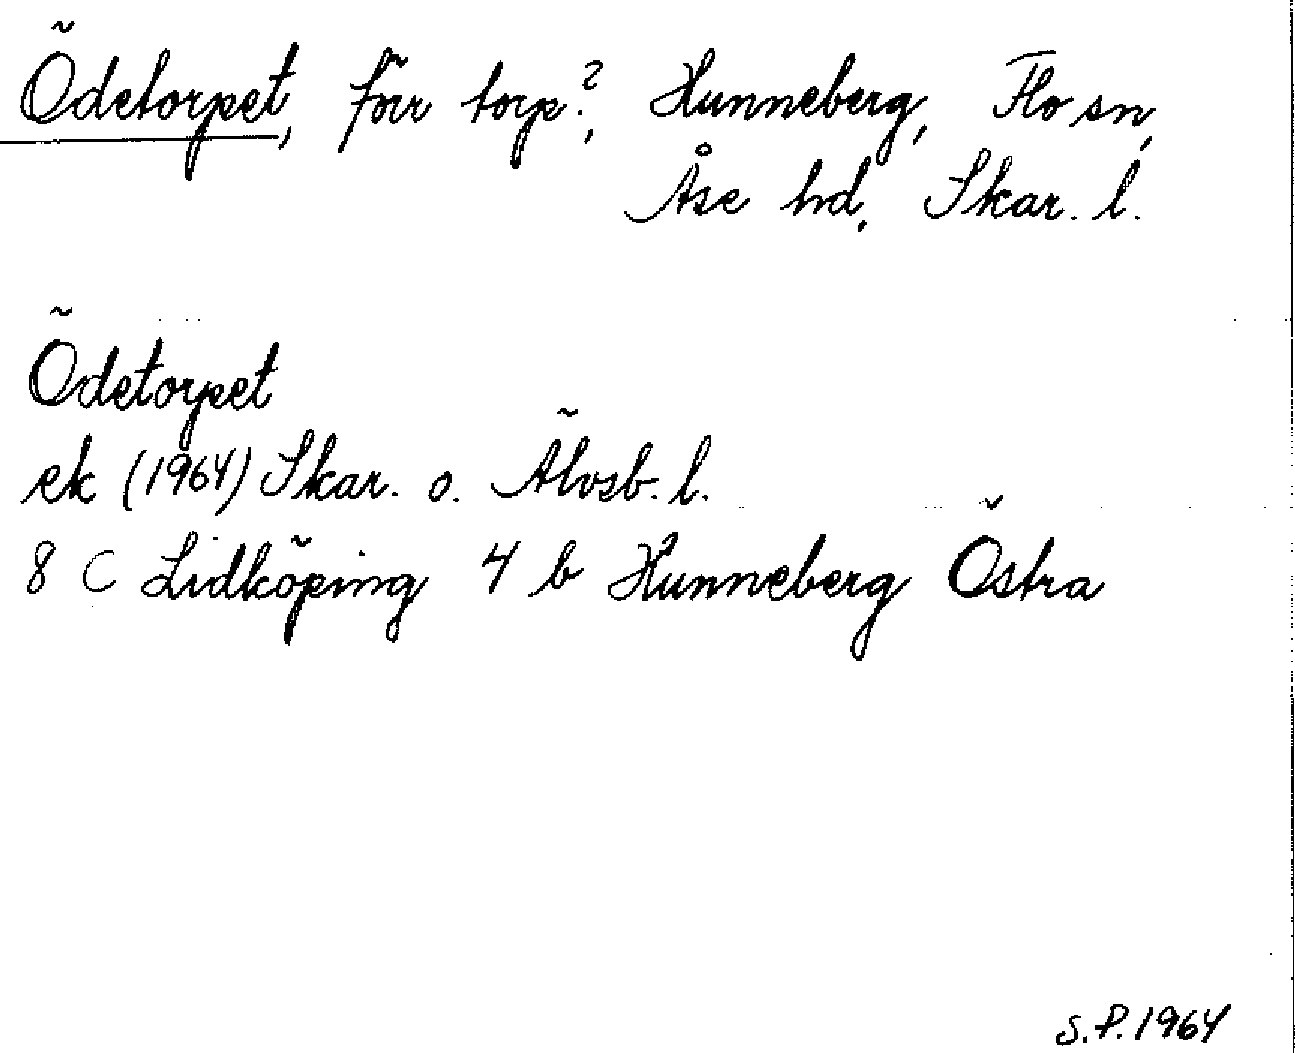 Ödetorpet, förr torp?, Hunneberg, Flo sn,
Åse hd, Skar. l.
Ödetorpet
ek (1964) Skar. o. Älvsb. l.
8 C Lidköping 4 b Hunneberg Östra
S.P. 1964